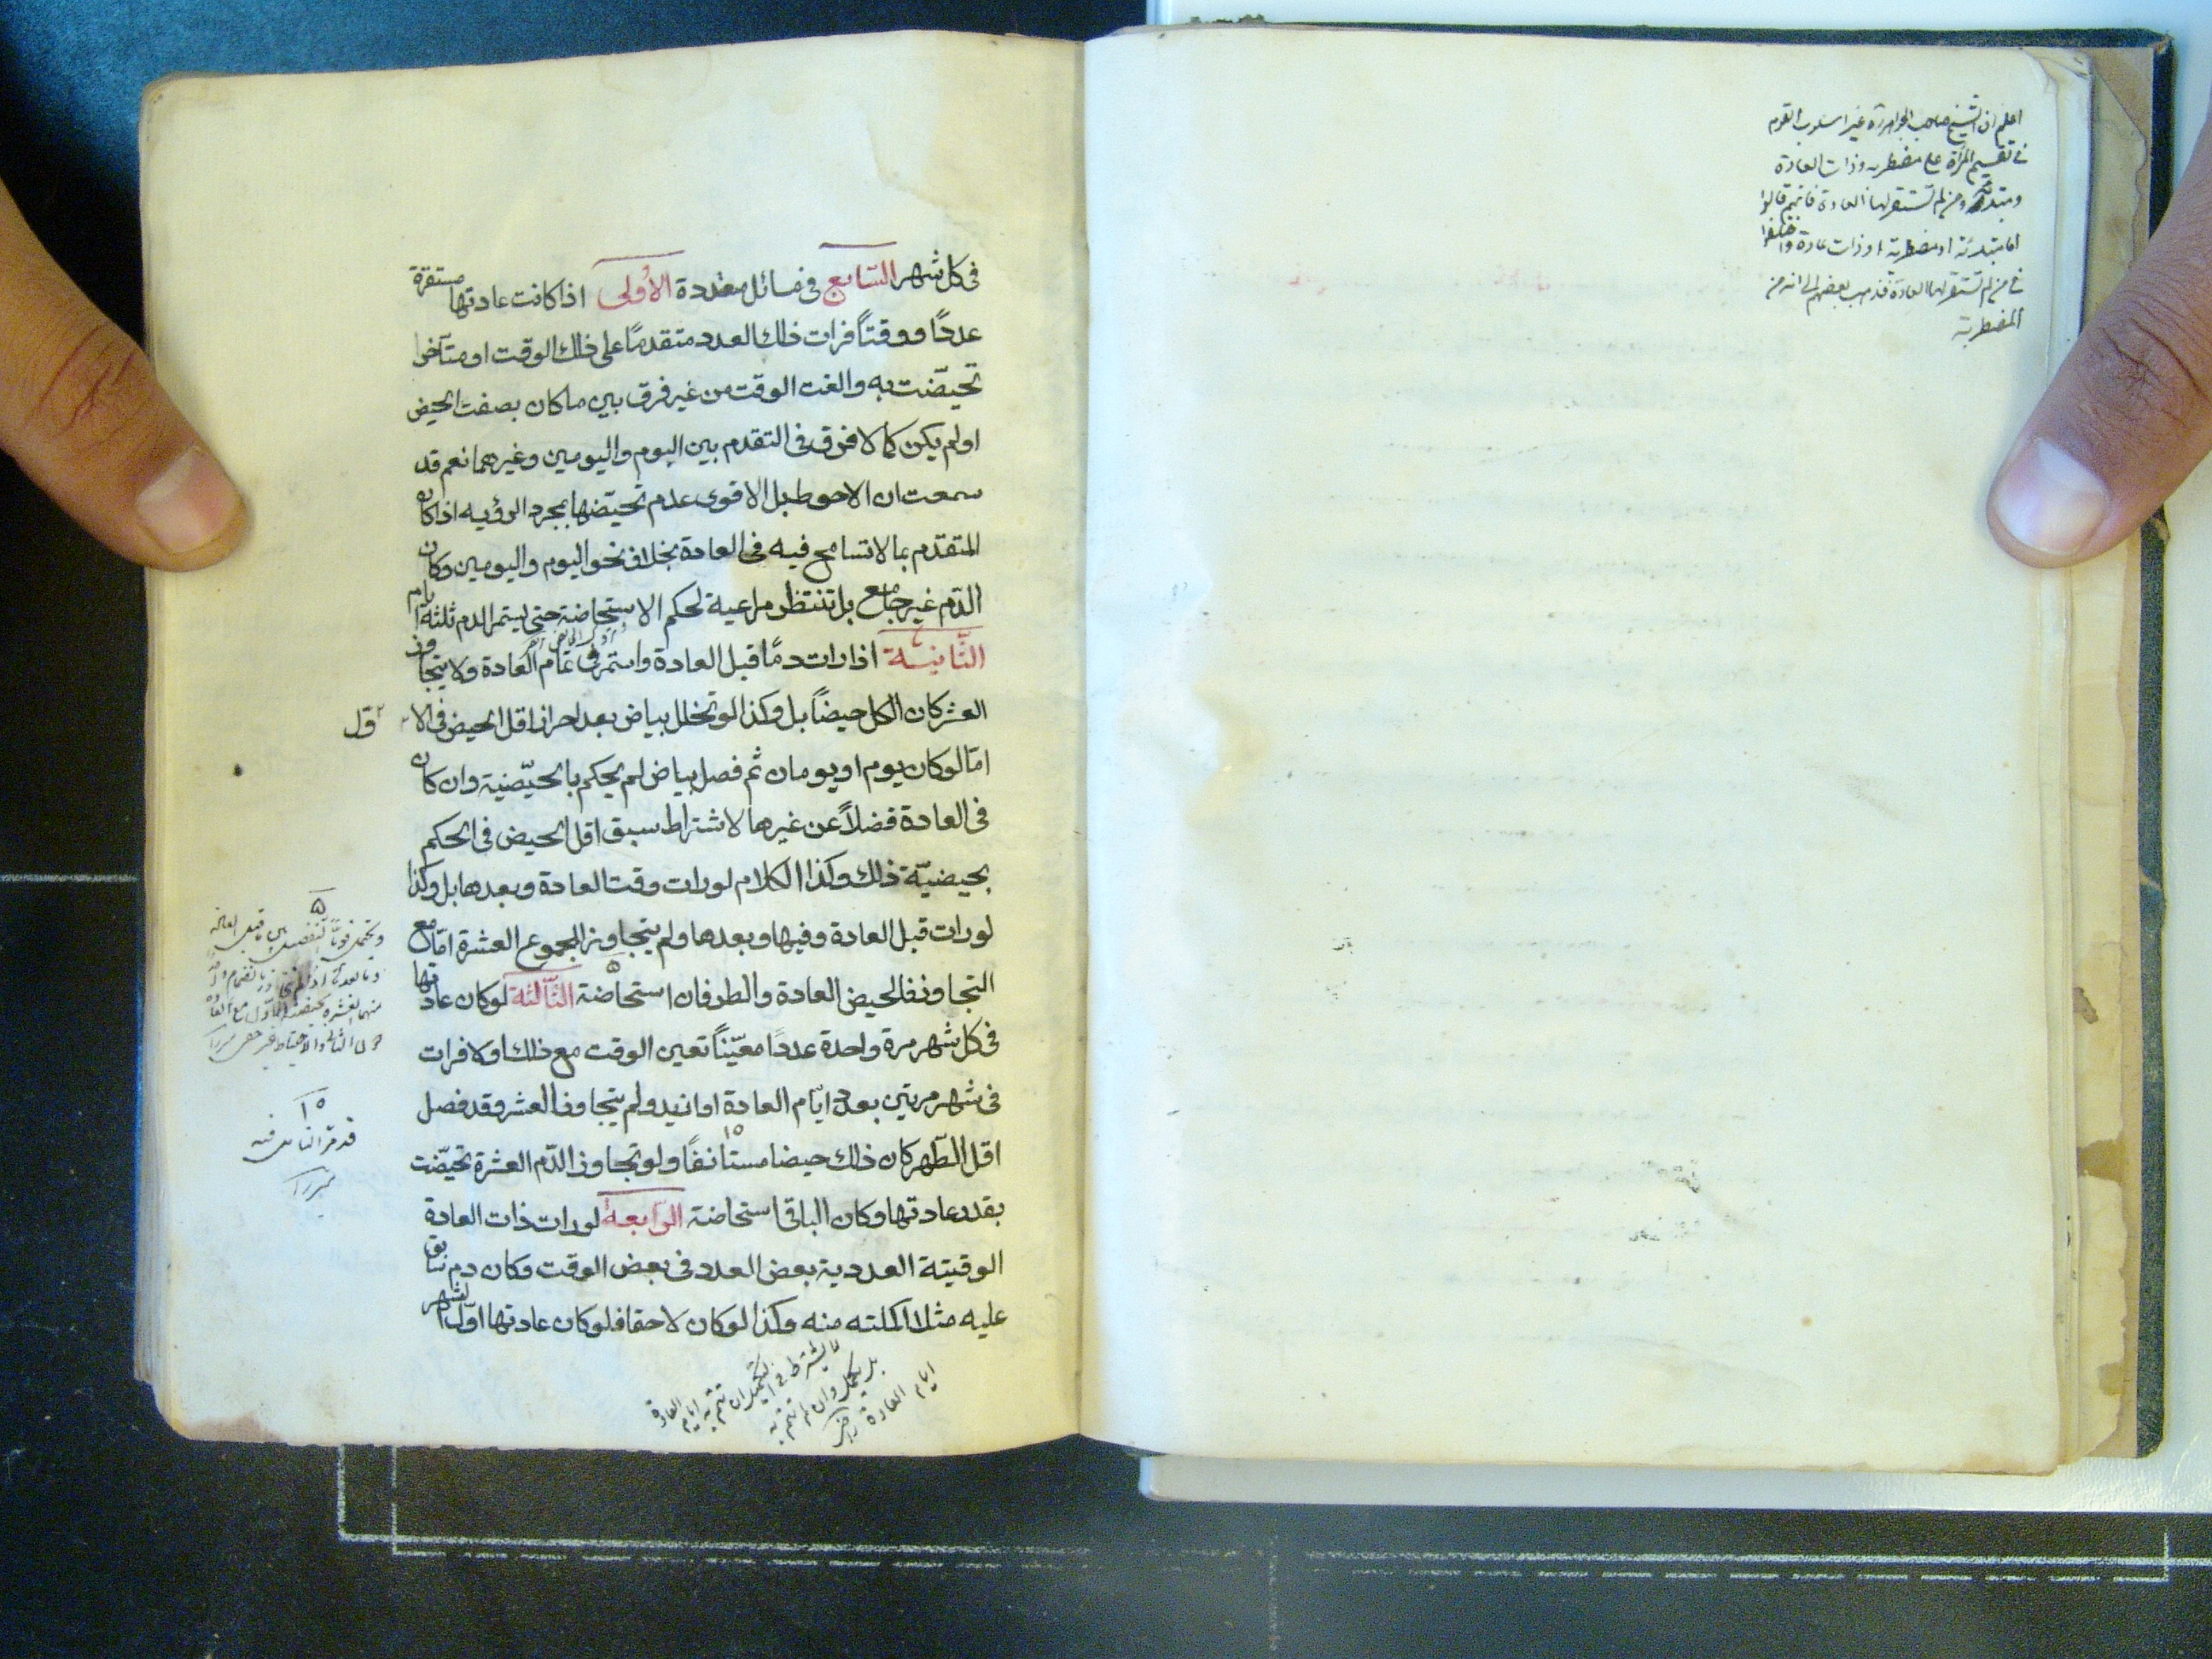 اعلم ان الشيخ صاحب الجواهر ره غير اسلوب القوم
في تقسيم المرأة على مضطربه وذات العادة
ومبتدئة ومن لم تستقر لها العادة فانهم قالوا
اما مبتدئة او مضطربة او ذات عادة واختلفوا
في من لم تستقر لها العادة فذهب بعضهم الى انه من
المضطربة
فى كل شهر السابع فى مسائل متعددة الاولى اذا كانت عادتها مستقرة
عددًا ووقتًا فرات ذلك العدد متقدمًا على ذلك الوقت او متأخرا
تحيّضت به والغت الوقت من غير فرق بين ما كان بصفت الحيض
او لم يكن كما لا فرق فى التقدم بين اليوم واليومين وغيرهما نعم قد
سمعت ان الاحوط بل الاقوى عدم تحيّضها بمجرد الرؤيه اذا كان
المتقدم بما لا تسامح فيه فى العادة بخلاف نحو اليوم واليومين وكان
الدّم غير جامع بل تنتظر مراعية لحكم الاستحاضة حتى يستمر الدم ثلثة ايام
الثّانية اذا رات دمًا قبل العادة واستمر فى تمام العادة ولا يتجاوز
العشر كان الكل حيضاً بل وكذا لو تخلل بياض بعد احراز اقل الحيض فى الاول
امّا لو كان يوم او يومان ثم فصل بياض لم يحكم بالحيّضية وان كان
فى العادة فضلاً عن غيرها لاشتراط سبق اقل الحيض فى الحكم
بحيضيّة ذلك وكذا الكلام لو رات وقت العادة وبعدها بل وكذا
لو رات قبل العادة وفيها وبعدها ولم يتجاوز المجموع العشرة امّا مع
التجاوز فالحيض العادة والطرفان استحاضة الثّالثة لو كان عادتها
فى كل شهر مرة واحدة عددًا معيّناً تعين الوقت مع ذلك اولا فرات
فى شهر مرتين بعدد ايّام العادة او ازيد ولم يتجاوز العشر وقد فصل
اقل الطّهر كان ذلك حيضا مستانفًا ولو تجاوز الدّم العشرة تحيّضت
بقدر عادتها وكان الباقى استحاضة الرّابعة لو رات ذات العادة
الوقيتة العددية بعض العدد فى بعض الوقت وكان دم سابق
عليه مثلا اكملته منه وكذا لو كان لاحقا فلو كان عادتها اوّل الشهر
۵
ويحتمل قويّاً التفصيل بين ما قبل العادة
وما بعدها
۱۵
قد مرّ التأمل فيه
لا يشترط في التكميل ان تتم به ايام العادة
بل يكمل وان لم تتم به
ايام العادة